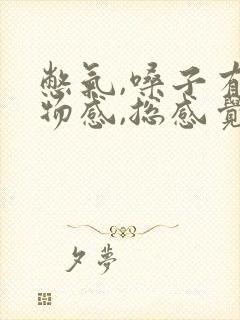 憋氣,嗓子有
物感,总感覺
夕夢